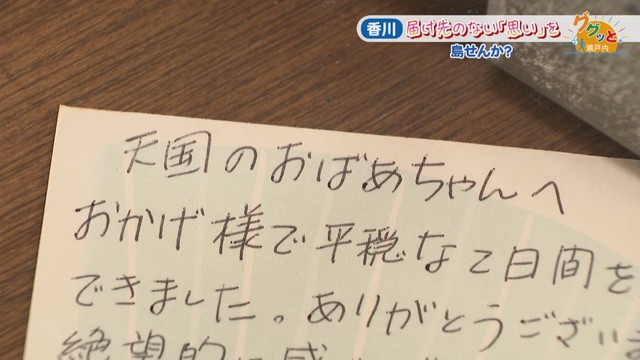 香川 届け先のない「思い」を
島せんか?
ググッと
瀬戸内
天国のおばあちゃんへ
おかげ様で平穏な2日間を
できました。ありがとうござい
絶望的に感